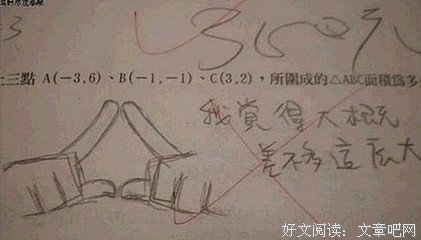 3 360元
上三點 A(-3,6)、B(-1,-1)、C(3,2)，所圍成的△ABC面積為多
我覺得大概
差不多這麼大
好文阅读：文章吧网